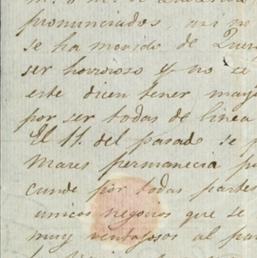 pronunciados, asi no
se ha movido de Quer
ser horroroso y no ce
este dicen tener may
por ser todas de linea
El 11. del pasado se p
Mares permanecia p
cunde por todas partes
unicos negocios que se
muy ventajosos al pa